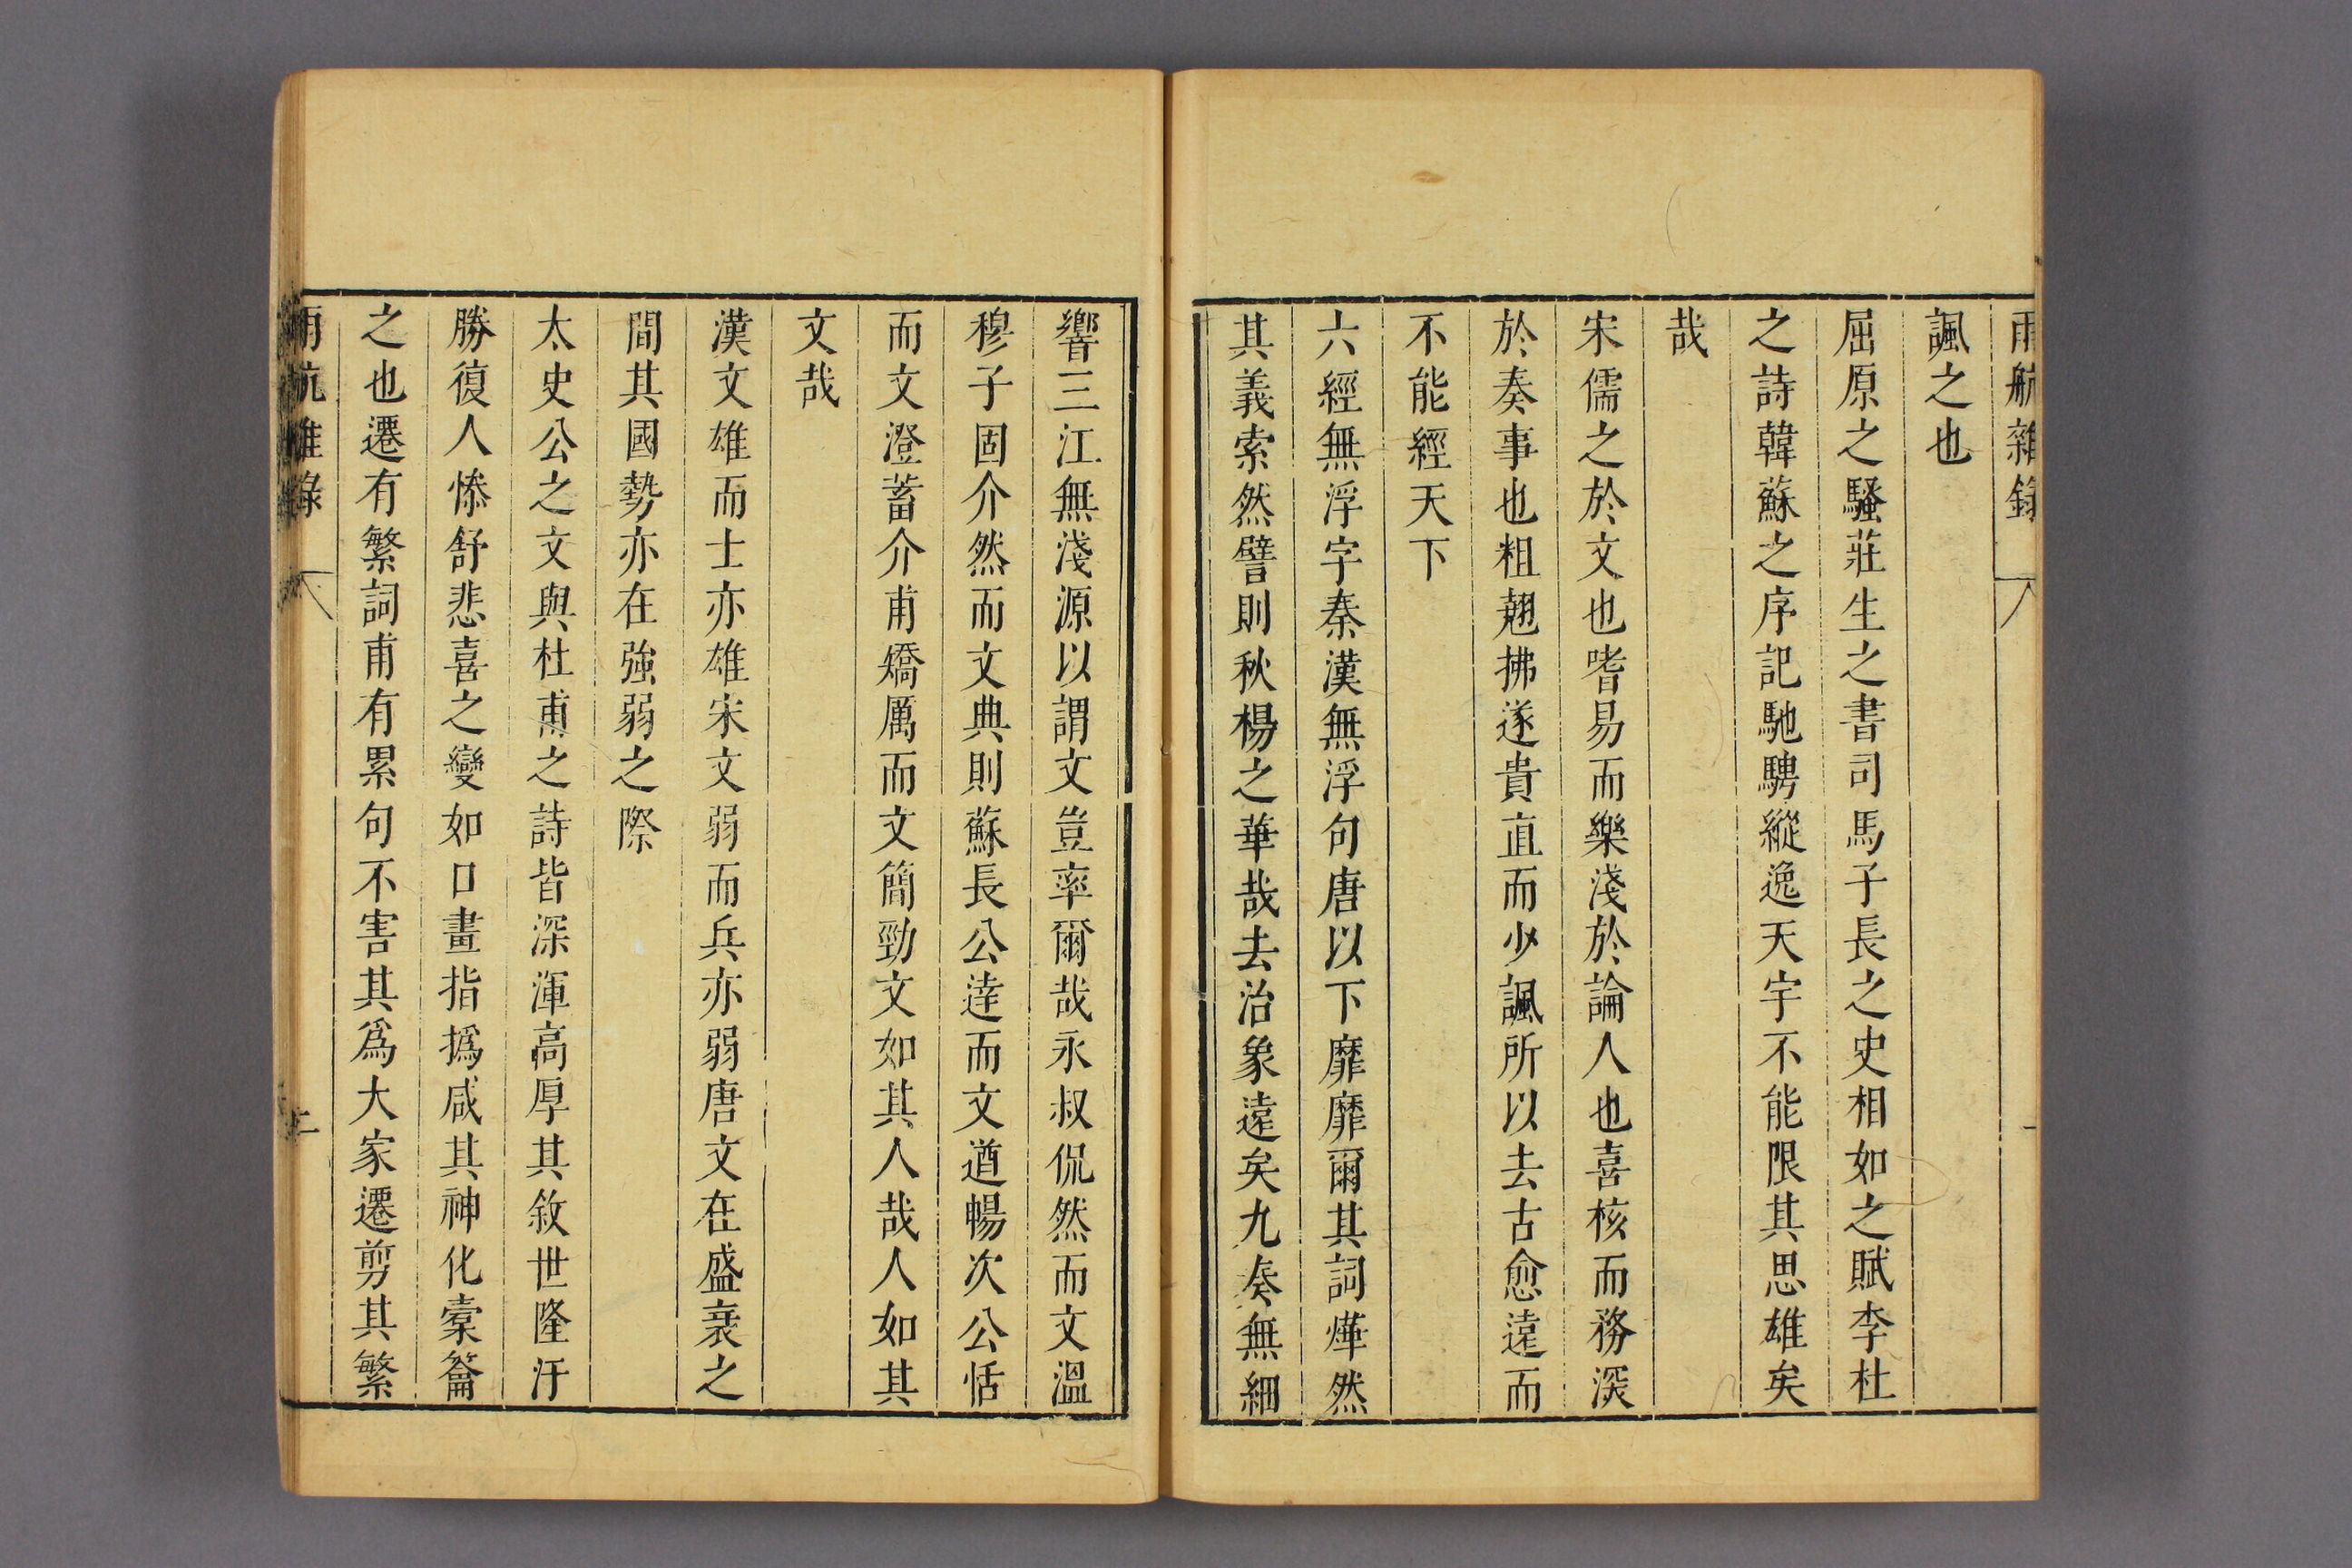 雨航雜錄
諷之也
屈原之騷莊生之書司馬子長之史相如之賦李杜
之詩韓蘇之序記馳騁縱逸天宇不能限其思雄矣
哉
宋儒之於文也嗜易而樂淺於論人也喜核而務深
於奏事也粗翹拂遂貴直而少諷所以去古愈遠而
不能經天下
六經無浮字秦漢無浮句唐以下靡靡爾其詞燁然
其義索然譬則秋楊之華哉去治象遠矣九奏無細
響三江無淺源以謂文豈率爾哉永叔侃然而文溫
穆子固介然而文典則蘇長公達而文遒暢次公恬
而文澄蓄介甫矯厲而文簡勁文如其人哉人如其
文哉
漢文雄而士亦雄宋文弱而兵亦弱唐文在盛衰之
間其國勢亦在強弱之際
太史公之文與杜甫之詩皆深渾高厚其敘世隆汙
勝復人慘舒悲喜之變如口畫指撝咸其神化橐籥
之也遷有繁詞甫有累句不害其爲大家遷剪其繁
雨航雜錄